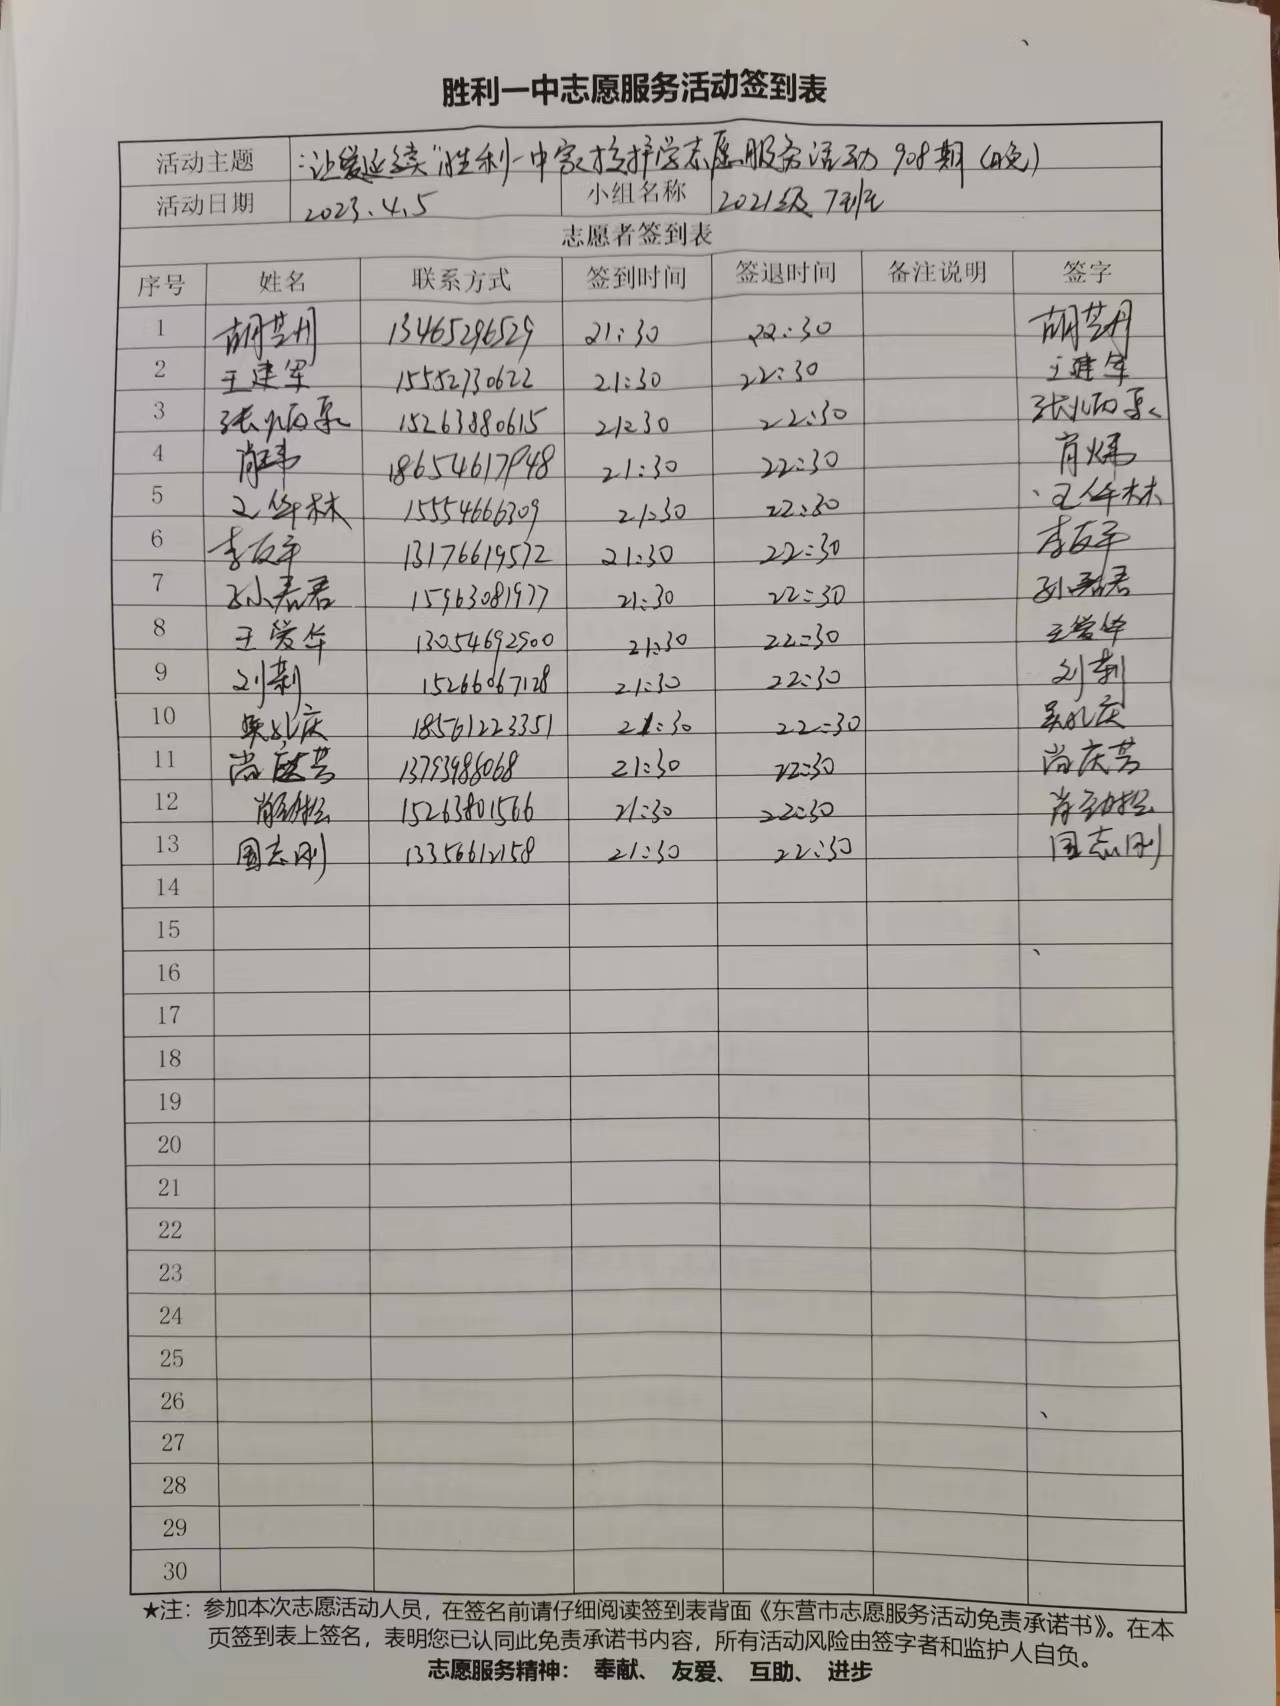 胜利一中志愿服务活动签到表
活动主题 "让爱延续"胜利一中家校护学志愿服务活动 908期 (晚)
活动日期 2023.4.5 小组名称 2021级7班
志愿者签到表
序号 姓名 联系方式 签到时间 签退时间 备注说明 签字
1 13465296529 21:30 22:30
2 王建军 15552730622 21:30 22:30 王建军
3 15263880615 21:30 22:30
4 肖玮 18654617948 21:30 22:30
5 王华林 15554666309 21:30 22:30 王华林
6 13176619572 21:30 22:30
7 15963081977 21:30 22:30
8 王爱华 13054692900 21:30 22:30 王爱华
9 15266067128 21:30 22:30
10 吴兆庆 18561223351 21:30 22:30 吴兆庆
11 尚庆芸 13793986068 21:30 22:30 尚庆芸
12 15263801566 21:30 22:30
13 国志刚 13356612158 21:30 22:30 国志刚
14
15
16
17
18
19
20
21
22
23
24
25
26
27
28
29
30
★注：参加本次志愿活动人员，在签名前请仔细阅读签到表背面《东营市志愿服务活动免责承诺书》。在本
页签到表上签名，表明您已认同此免责承诺书内容，所有活动风险由签字者和监护人自负。
志愿服务精神： 奉献、 友爱、 互助、 进步